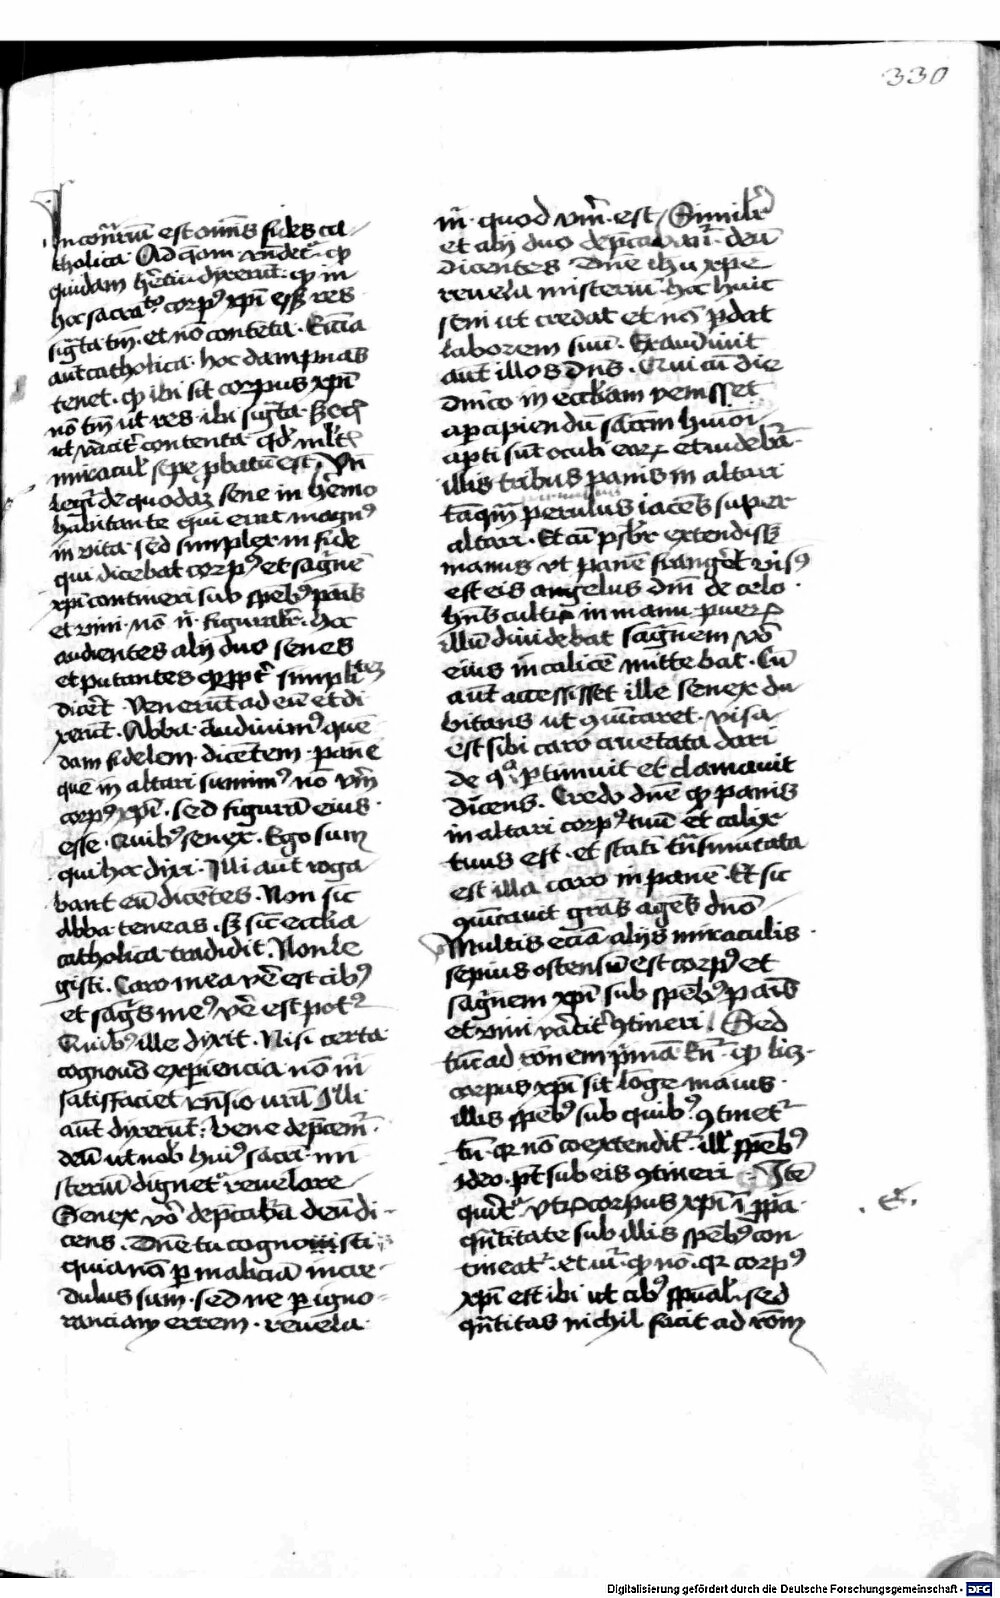 330
In co(n)t(ra)riu(m) est om(n)is fides ca-
tholica. Ad q(uesti)onem r(espo)ndet(ur) q(uod)
quidam h(e)retici dixeru(n)t q(uod) in
hoc sacra(men)to corp(us) xpi e(ss)et res
sig(na)ta t(antu)m et no(n) contenta. Eccl(es)ia
aut(em) catholica hoc dampnas
tenet q(uod) ibi sit corpus xpi
no(n) t(antu)m ut res ibi sig(na)ta sed
ut v(er)aciter contenta q(uo)d mult(is)
miracul(is) sepe p(ro)batu(m) est. Vn(de)
legi(tur) de quodaz sene in h(er)emo
habitante qui erat magn(us)
in vita sed simplex in fide
qui dicebat corp(us) et sa(n)g(ui)ne(m)
xpi contineri sub sp(eci)eb(us) panis
et vini no(n) n(isi) figural(ite)r. hoc
audientes alij duo senes
et putantes q(uod) p(ro)pt(er) simpli(cita)tez
dic(er)et. Veneru(n)t ad eu(m) et di
xeru(n)t. Abba audiuim(us) que(n)
dam fidelem dice(n)tem. pane(m)
que(m) in altari sumim(us) no(n) v(eru)m
corp(us) xpi sed figura(m) eius
esse. Quib(us) senex. Ego sum
qui hoc dixi. Illi aut(em) roga
bant eu(m) dice(n)tes. Non sic
Abba teneas. s(ed) sic(ut) eccl(es)ia
catholica tradidit. Non le
gisti. Caro mea ve(re) est cib(us)
et sa(n)g(ui)s me(us) ve(re) est pot(us)
Quib(us) ille dixit. Nisi certa
cognou(er)o exp(er)iencia no(n) m(ihi)
satisfaciet r(espo)nsio v(est)ra. Illi
aut(em) dixeru(n)t. bene dep(re)cem(ur)
deu(m) ut nob(is) hui(us) sacra(menti) mi
steriu(m) dignet(ur) reuelare
Senex v(er)o dep(re)cab(atur) deu(m) di-
cens. D(omi)ne tu cognouisti
quia no(n) p(er) malicia(m) incre-
dulus sum. sed ne p(er) igno-
ranciam errem. reuela
m(ihi) quod v(eru)m est. Similit(er)
et alij duo dep(re)cabant(ur) deu(m)
dicentes D(omi)ne ih(es)u xpe
reuela misteriu(m) hoc huic
seni ut credat et no(n) p(er)dat
laborem suu(m). Exaudiuit
aut(em) illos d(omi)n(u)s. Qui cu(m) die
d(omi)nico in eccl(es)iam venisset
ap(er)cipiendu(m) sac(ra)m(entu)m hui(us)mo(d)i
ap(er)ti su(n)t oculi eor(um) et videba(tur)
illis tribus panis in altari
ta(m)q(ua)m p(ar)uulus iace(n)s super
altari. Et cu(m) p(re)sb(ite)r extendiss(et)
manus vt pane(m) frang(er)et vis(us)
est eis angelus d(omi)ni de celo
h(abe)ns cultru(m) in manu pueru(m)
illu(m) diuidebat sa(n)g(ui)nem v(er)o
eius in calice(m) mittebat. Cu(m)
aut(em) accessisset ille senex du
bitans ut (com)mu(n)icaret. visa
est sibi caro cruetata dari
de q(u)a p(er)timuit et clamauit
dicens. Credo d(omi)ne q(uod) panis
in altari corp(us) tuu(m) et calix
tuus est. et stati(m) t(ra)nsmutata
est illa caro in pane(m). Et sic
(com)mu(n)icauit gra(cia)s age(n)s d(omi)no
Multis ecia(m) alijs miraculis
sepius ostensu(m) est corp(us) et
sa(n)g(ui)nem xpi sub sp(eci)eb(us) panis
et vini v(er)acit(er) (con)tineri. Sed
tu(n)c ad r(aci)onem p(ri)ma(m) r(espondetu)r q(uod) licz
corpus xpi sit lo(n)ge maius
illis sp(eci)eb(us) sub quib(us) (con)tinet(ur)
t(ame)n q(uia) no(n) coextendit(ur) ill(is) sp(eci)eb(us)
ideo p(otes)t sub eis (con)tineri. Ite(m)
qu(er)it(ur) vtru(m) corpus xpi i(n) p(ro)p(r)ia
qu(a)ntitate sub illis sp(eci)eb(us) con
tineat(ur). et v(idet)ur q(uod) no(n). q(uia) corp(us)
xpi est ibi ut cib(us) sp(irit)ual(is). sed
qu(a)ntitas nichil facit ad r(aci)o(ne)m
Digitalisierung gefördert durch die Deutsche Forschungsgemeinschaft - DFG